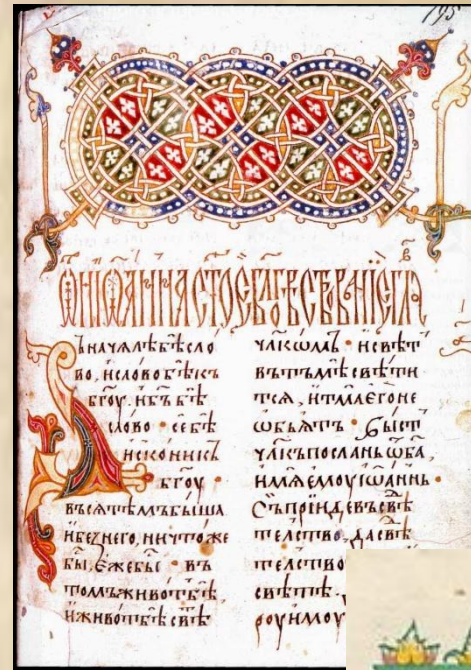 195
ѾІѠАННА СТОЕ БЛГОВѢСТВѠВАНІЕ ГЛА В҃
Ъначѧлѣбѣсло
во, исловобѣкъ
бгоу. ибъбѣ
слово · себѣ
исконикъ
бгоу ·
въсѧтѣмъбыша
ибезнего, ничтоже
бы, Ежебы · въ
томъживотъбѣ
иживотъбѣсвѣ
члкѡмъ · исвѣт
вътъмѣсвѣти
тсѧ, итмаегоне
ѡбьѧтъ · Бысть
члкъпосланьѿба,
имѧемоуіѡаннь ·
Съпріидевъсвѣ
телство, дасвѣ
телство
свѣтѣ,
роуимоу